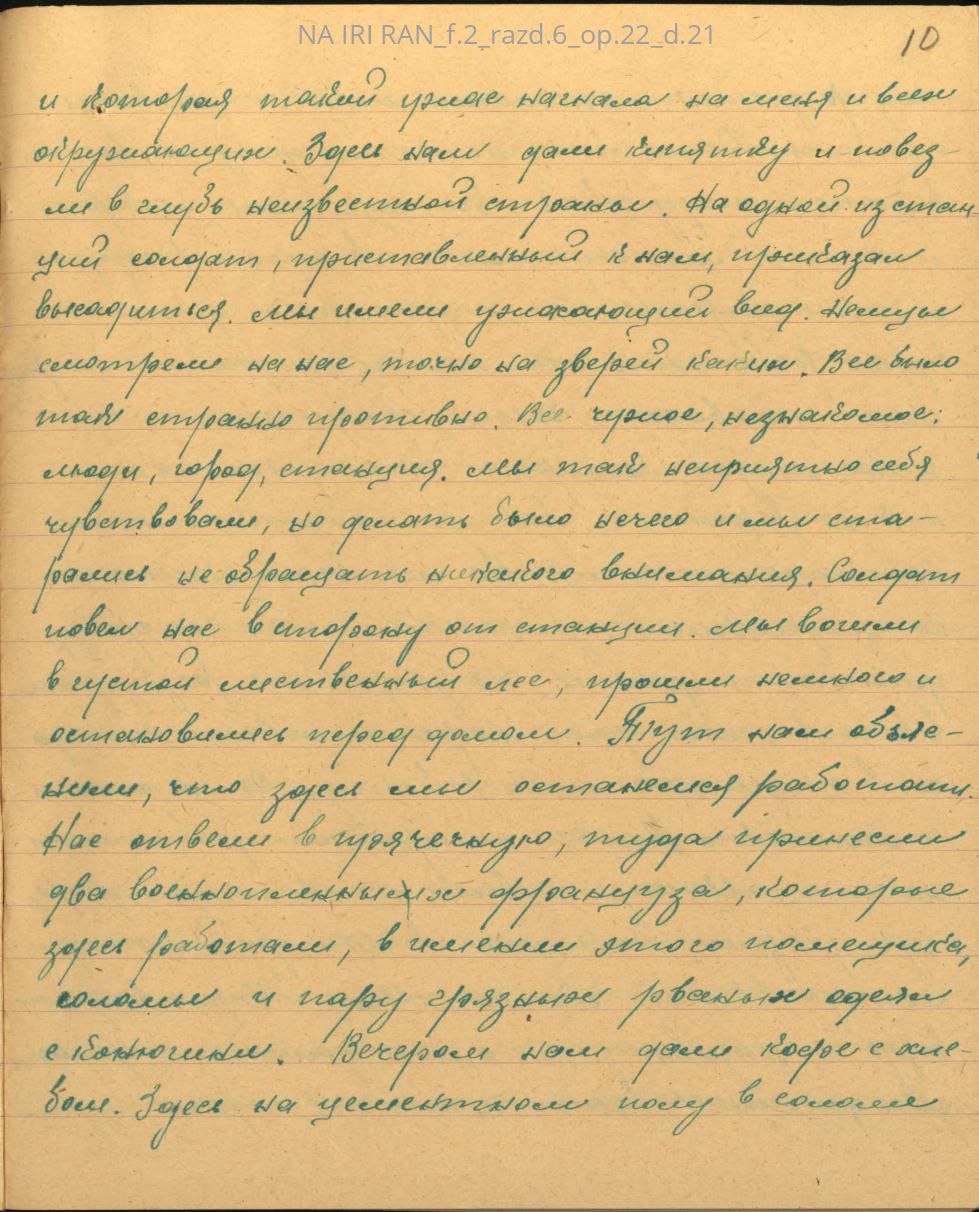 NA IRI RAN_f.2_razd.6_op.22_d.21
10
и которая такой ужас нагнала на меня и всех
окружающих. Здесь нам дали кипятку и повез-
ли в глубь неизвестной страны. На одной из стан-
ций солдат, приставленный к нам, приказал
высадиться. Мы имели ужасающий вид. Немцы
смотрели на нас, точно на зверей каких. Все было
так странно противно. Все чужое, незнакомое:
люди, город, станция. Мы так неприятно себя
чувствовали, но делать было нечего и мы ста-
рались не обращать никакого внимания. Солдат
повел нас в сторону от станции. Мы вошли
в густой лиственный лес, прошли немного и
остановились перед домом. Тут нам объяс-
нили, что здесь мы останемся работать.
Нас отвели в прачечную, туда принесли
два военнопленных француза, которые
здесь работали, в имении этого помещика,
соломы и пару грязных рваных одеял
с конюшни. Вечером нам дали кофе с хле-
бом. Здесь на цементном полу в соломе